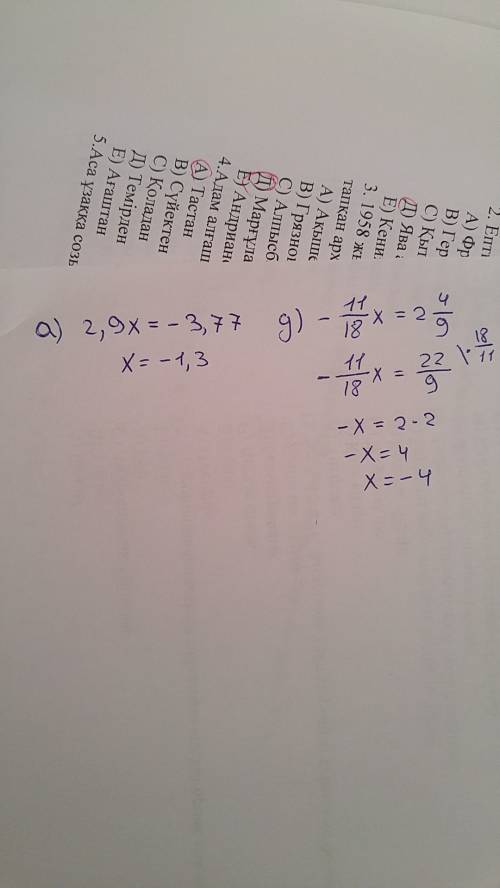 2. Епті
А) Фр
В) Гер
С) Қып
Д) Ява
Е) Кени
3. 1958 жі
тапқан арх
А) Ақыше
В) Грязнов
С) Алпысб
Д) Марғұла
Е) Андриан
4.Адам алғаш
А) Тастан
В) Сүйектен
С) Қоладан
Д) Темірден
Е) Ағаштан
5.Аса ұзаққа созы
а) 2,9x = - 3,77
x = -1,3
g) - 11/18 x = 2 4/9
- 11/18 x = 22/9 \· 18/11
-x = 2·2
-x = 4
x = -4